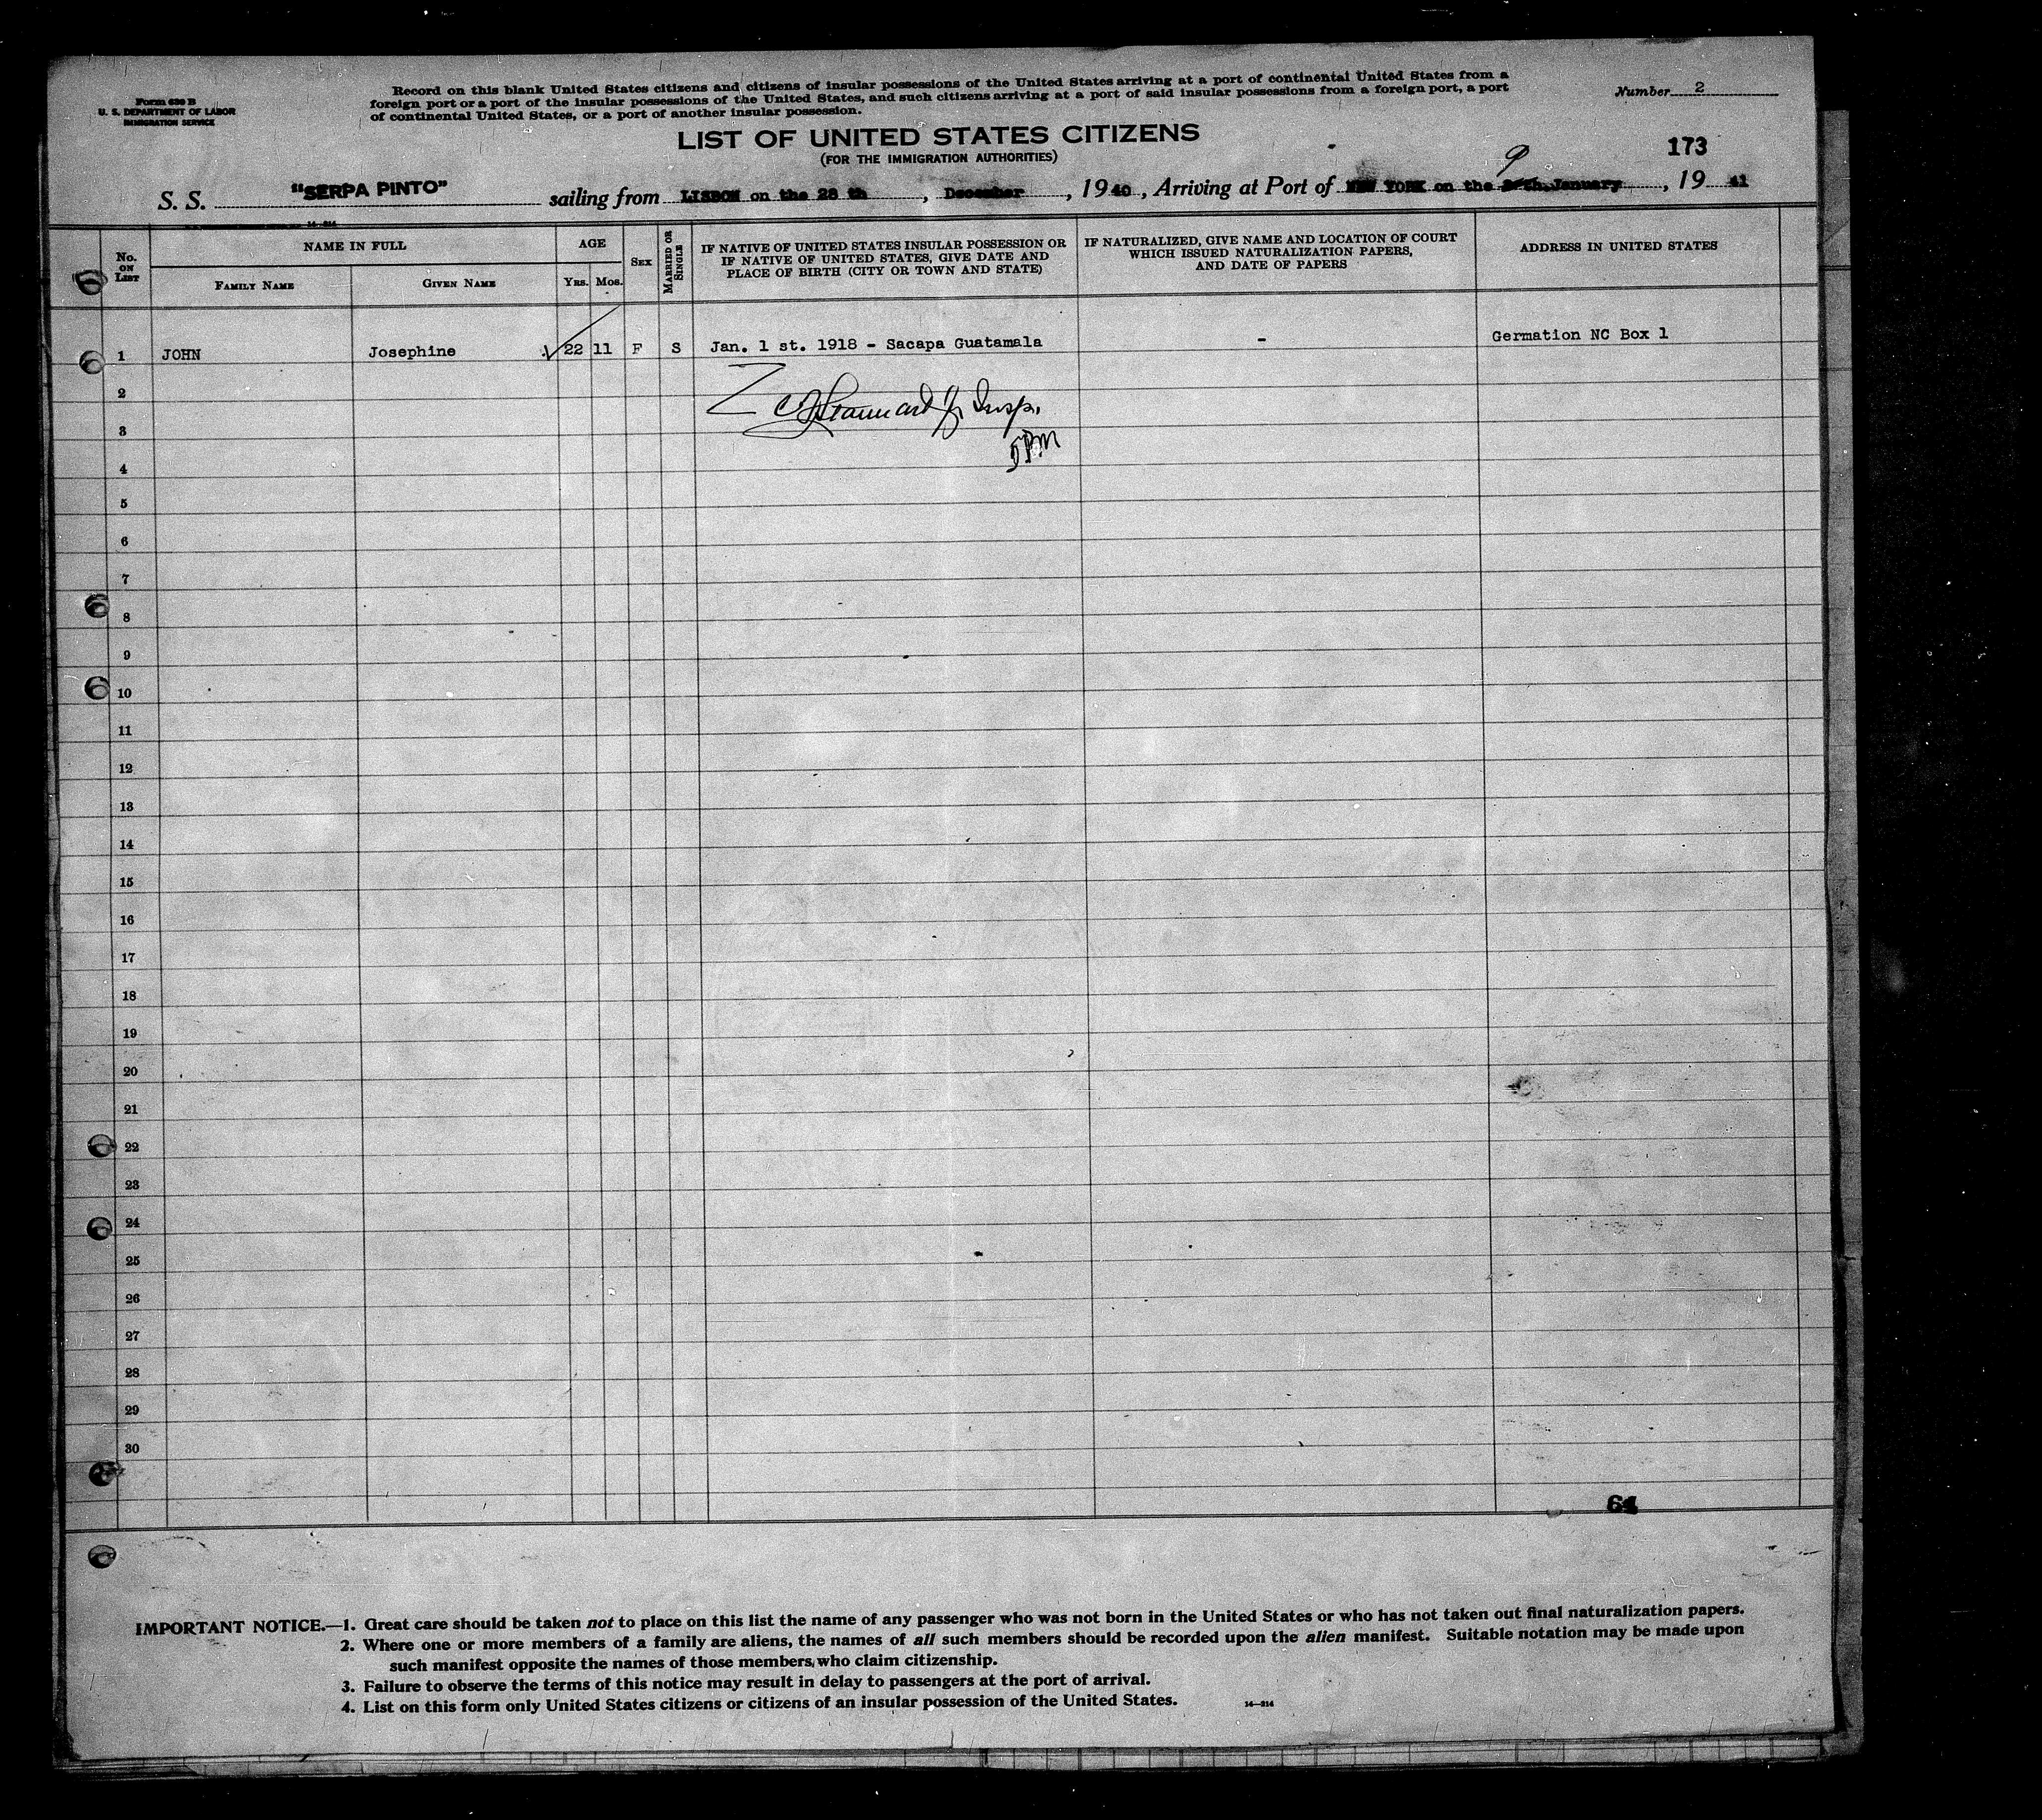 Form 630 B
U. S. DEPARTMENT OF LABOR
IMMIGRATION SERVICE
Record on this blank United States citizens and citizens of insular possessions of the United States arriving at a port of continental United States from a
foreign port or a port of the insular possessions of the United States, and such citizens arriving at a port of said insular possessions from a foreign port, a port
of continental United States, or a port of another insular possession.
Number 2
LIST OF UNITED STATES CITIZENS
(FOR THE IMMIGRATION AUTHORITIES)
173
S. S. "SERPA PINTO" sailing from LISBON on the 28 th, December, 1940, Arriving at Port of NEW YORK on the 9 January, 19 41
14-214
No. ON LIST
NAME IN FULL
FAMILY NAME
GIVEN NAME
AGE
YRS. MOS.
SEX
MARRIED OR SINGLE
IF NATIVE OF UNITED STATES INSULAR POSSESSION OR
IF NATIVE OF UNITED STATES, GIVE DATE AND
PLACE OF BIRTH (CITY OR TOWN AND STATE)
IF NATURALIZED, GIVE NAME AND LOCATION OF COURT
WHICH ISSUED NATURALIZATION PAPERS,
AND DATE OF PAPERS
ADDRESS IN UNITED STATES
1 JOHN Josephine 22 11 F S Jan. 1 st. 1918 - Sacapa Guatamala - Germation NC Box 1
2
Jr Insp.
3
5PM
4
5
6
7
8
9
10
11
12
13
14
15
16
17
18
19
20
21
22
23
24
25
26
27
28
29
30
64
IMPORTANT NOTICE.—1. Great care should be taken not to place on this list the name of any passenger who was not born in the United States or who has not taken out final naturalization papers.
2. Where one or more members of a family are aliens, the names of all such members should be recorded upon the alien manifest. Suitable notation may be made upon
such manifest opposite the names of those members who claim citizenship.
3. Failure to observe the terms of this notice may result in delay to passengers at the port of arrival.
4. List on this form only United States citizens or citizens of an insular possession of the United States.
14—214